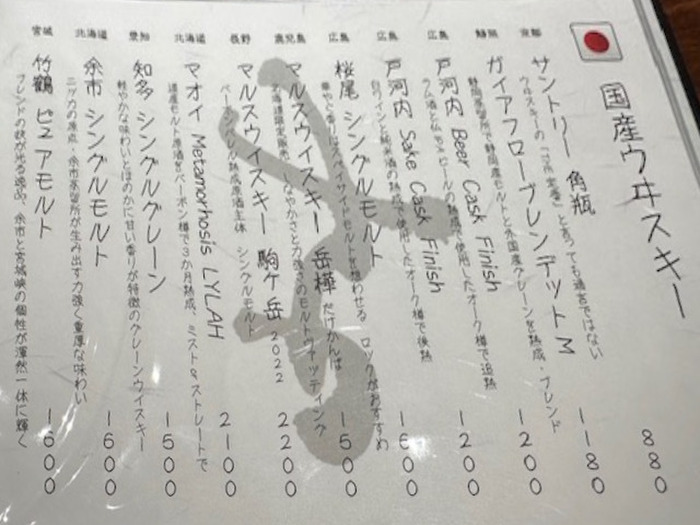 国産ウヰスキー
京都
サントリー 角瓶
880
ウヰスキーの
と言っても過言ではない
静岡
ガイアフローブレンデットM
1180
静岡蒸留所で静岡産モルトと外国産グレーンを熟成・ブレンド
広島
戸河内 Beer Cask Finish
1200
ラム酒と仏 ビールの熟成で使用したオーク樽で追熟
広島
戸河内 Sake Cask Finish
1200
白ワインと純米酒の熟成で使用したオーク樽で後熟
広島
桜尾 シングルモルト
1600
華やぐ香りはスペイサイドモルトを想わせる ロックがおすすめ
鹿児島
マルスウイスキー 岳樺 だけかんば
1500
北海道限定販売 しなやかさと力強さのモルトヴァッティング
長野
マルスウイスキー 駒ヶ岳 2022
2200
バーボンバレル熟成原酒主体 シングルモルト
北海道
マオイ Metamorphosis LYLAH
2100
道産モルト原酒をバーボン樽で3か月熟成、ミスト&ストレートで
愛知
知多 シングルグレーン
1500
軽やかな味わいとほのかに甘い香りが特徴のグレーンウイスキー
北海道
余市 シングルモルト
1600
ニッカの原点・余市蒸留所が生み出す力強く重厚な味わい
宮城
竹鶴 ピュアモルト
1600
ブレンドの妙が光る逸品、余市と宮城峡の個性が渾然一体に輝く